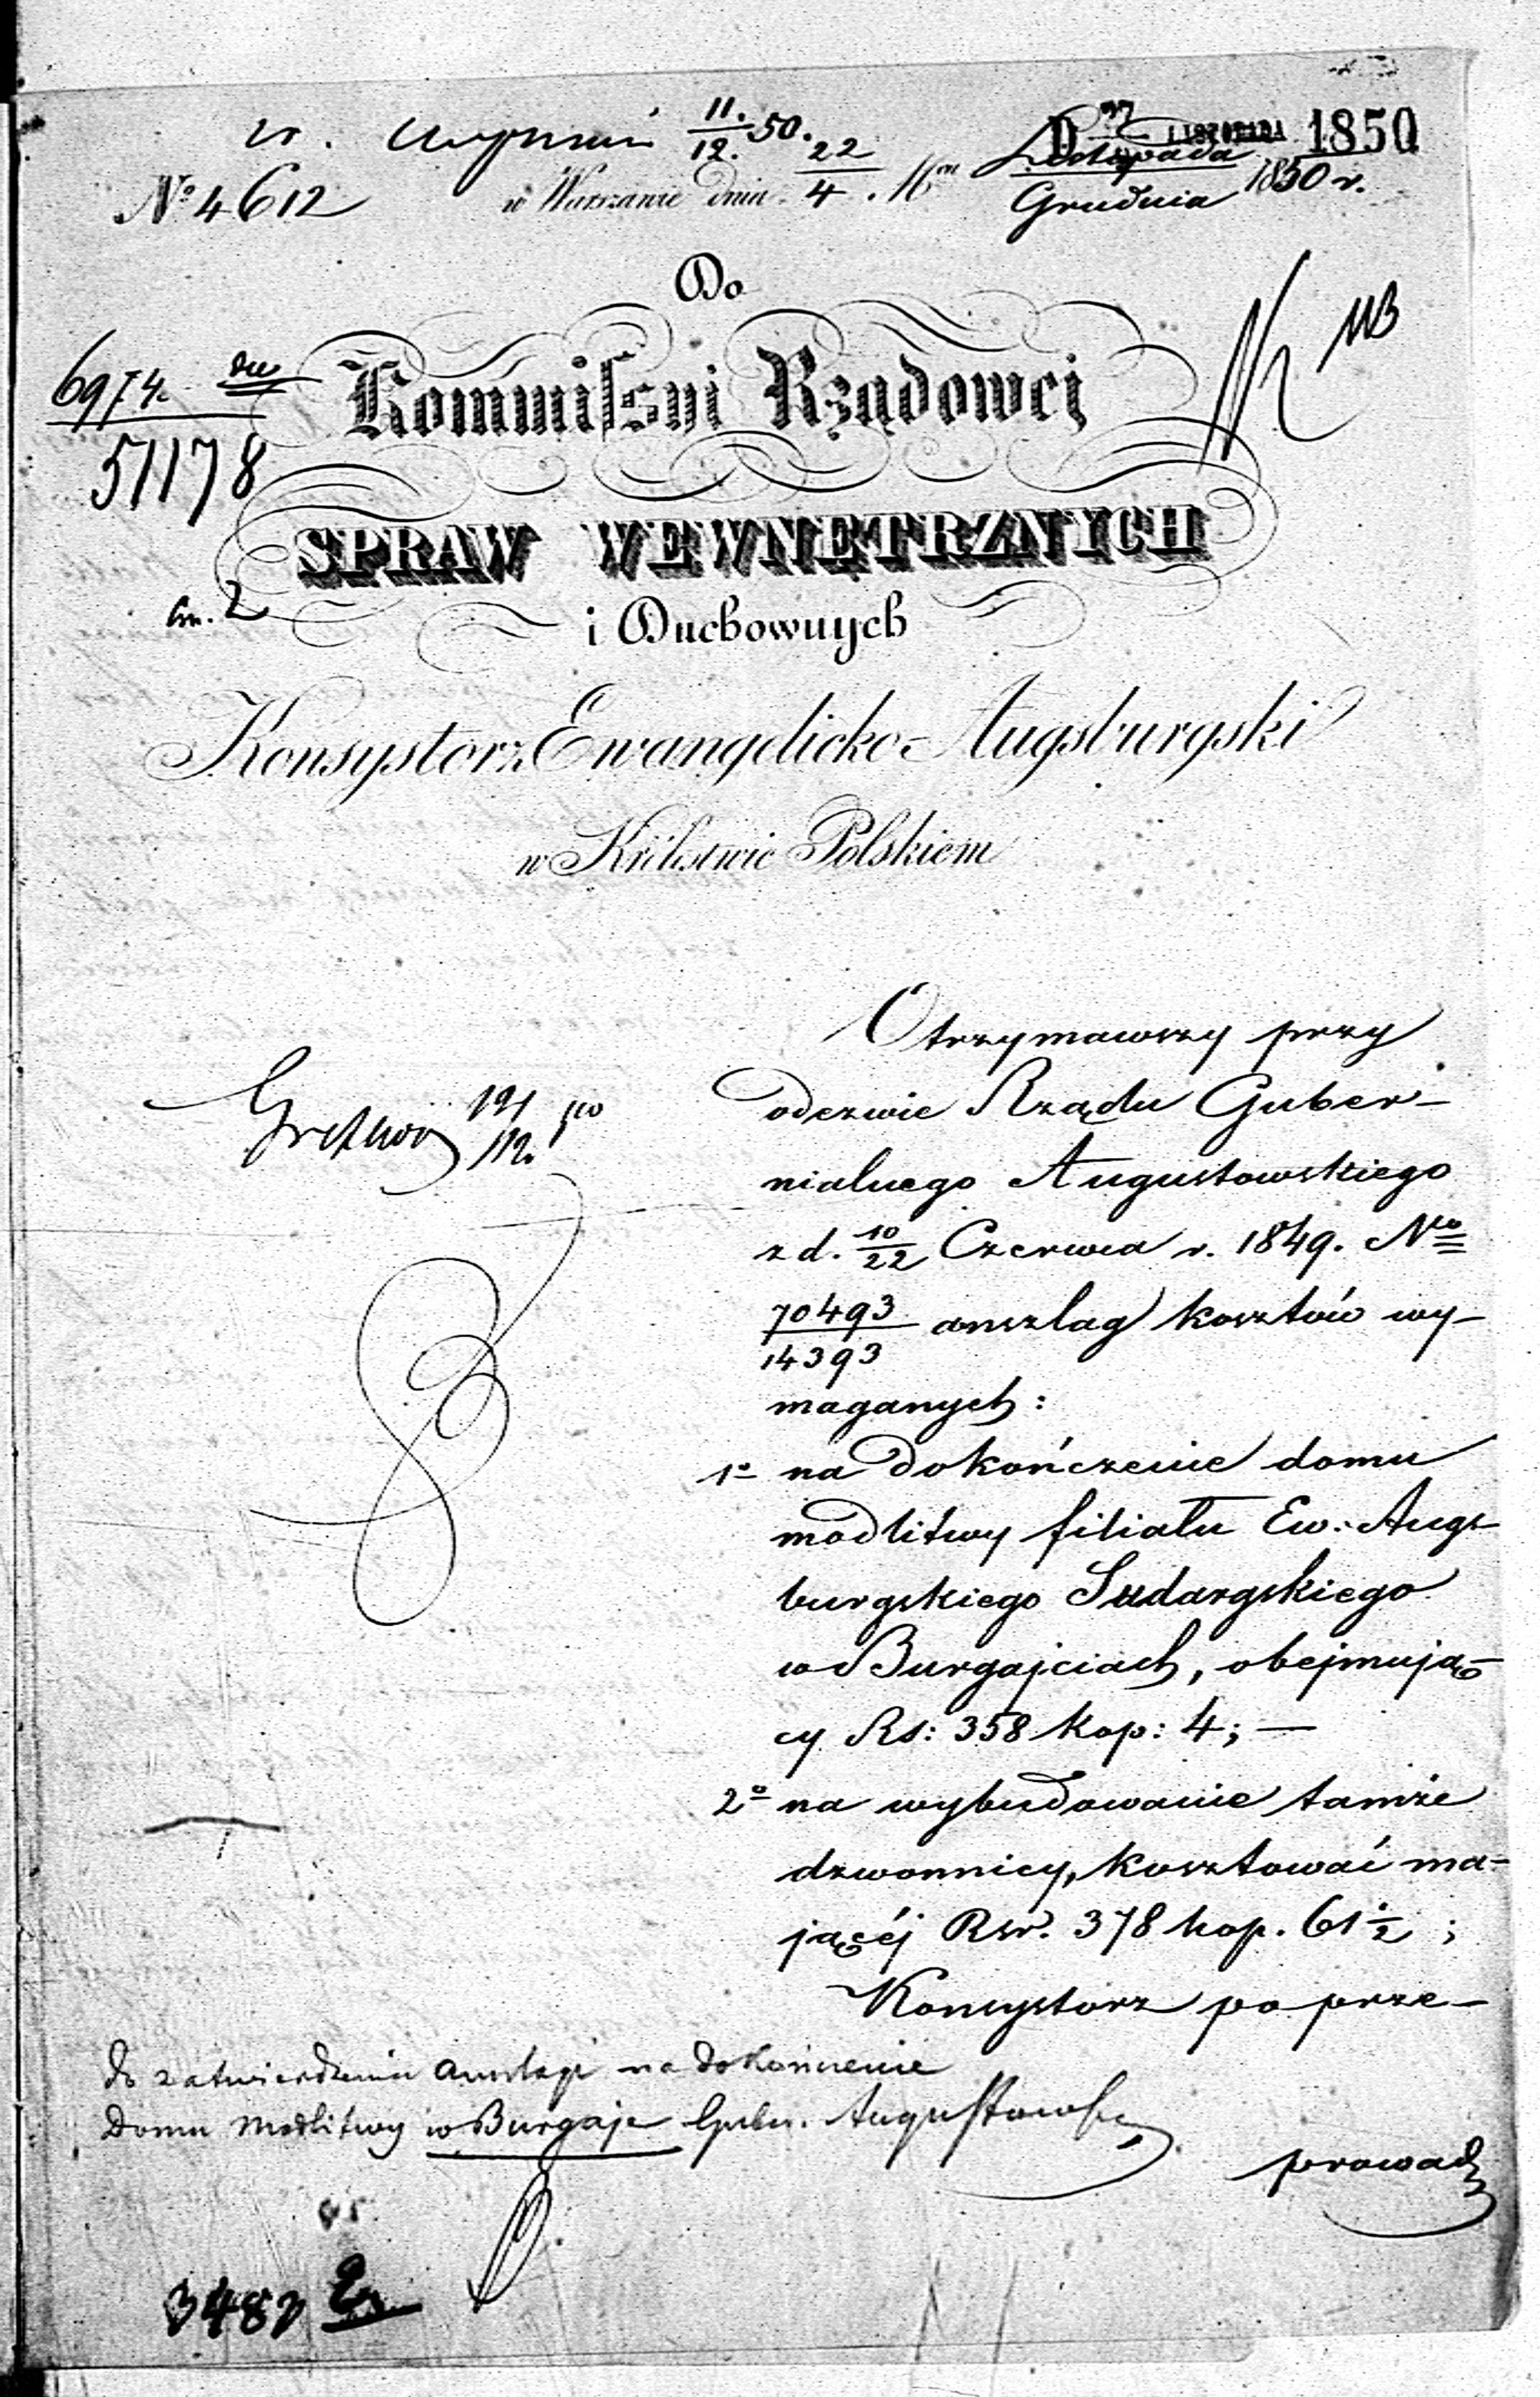 11./12. 50.
D 27 LISTOPADA 1850
№ 4612 w Warszawie dnia 22/4. Listopada/Grudnia 1850 r.
Do
113
6974
Kommissyi Rządowej
51178
SPRAW WEWNĘTRZNYCH
2
i Duchownych
Konsystorz Ewangelicko-Augsburgski
w Królestwie Polskiem
Otrzymawszy przy
odezwie Rządu Guber-
nialnego Augustowskiego
z d. 10/22 Czerwca r. 1849. No
70493/14393 anszlag kosztów wy-
maganych:
1o na dokończenie domu
modlitwy filiału Ew: Augs-
burgskiego Sudargskiego
w Burgajciach, obejmują-
cy Rs: 358 kop: 4; —
2o na wybudowanie tamże
dzwonnicy, kosztować ma-
jącéj Rsr. 378 kop. 61½ ;
Konsystorz po prze-
do zatwierdzenia anszlagi na dokończenie
Domu Modlitwy w Burgaje Gube. Augustowski
prowadz
3487